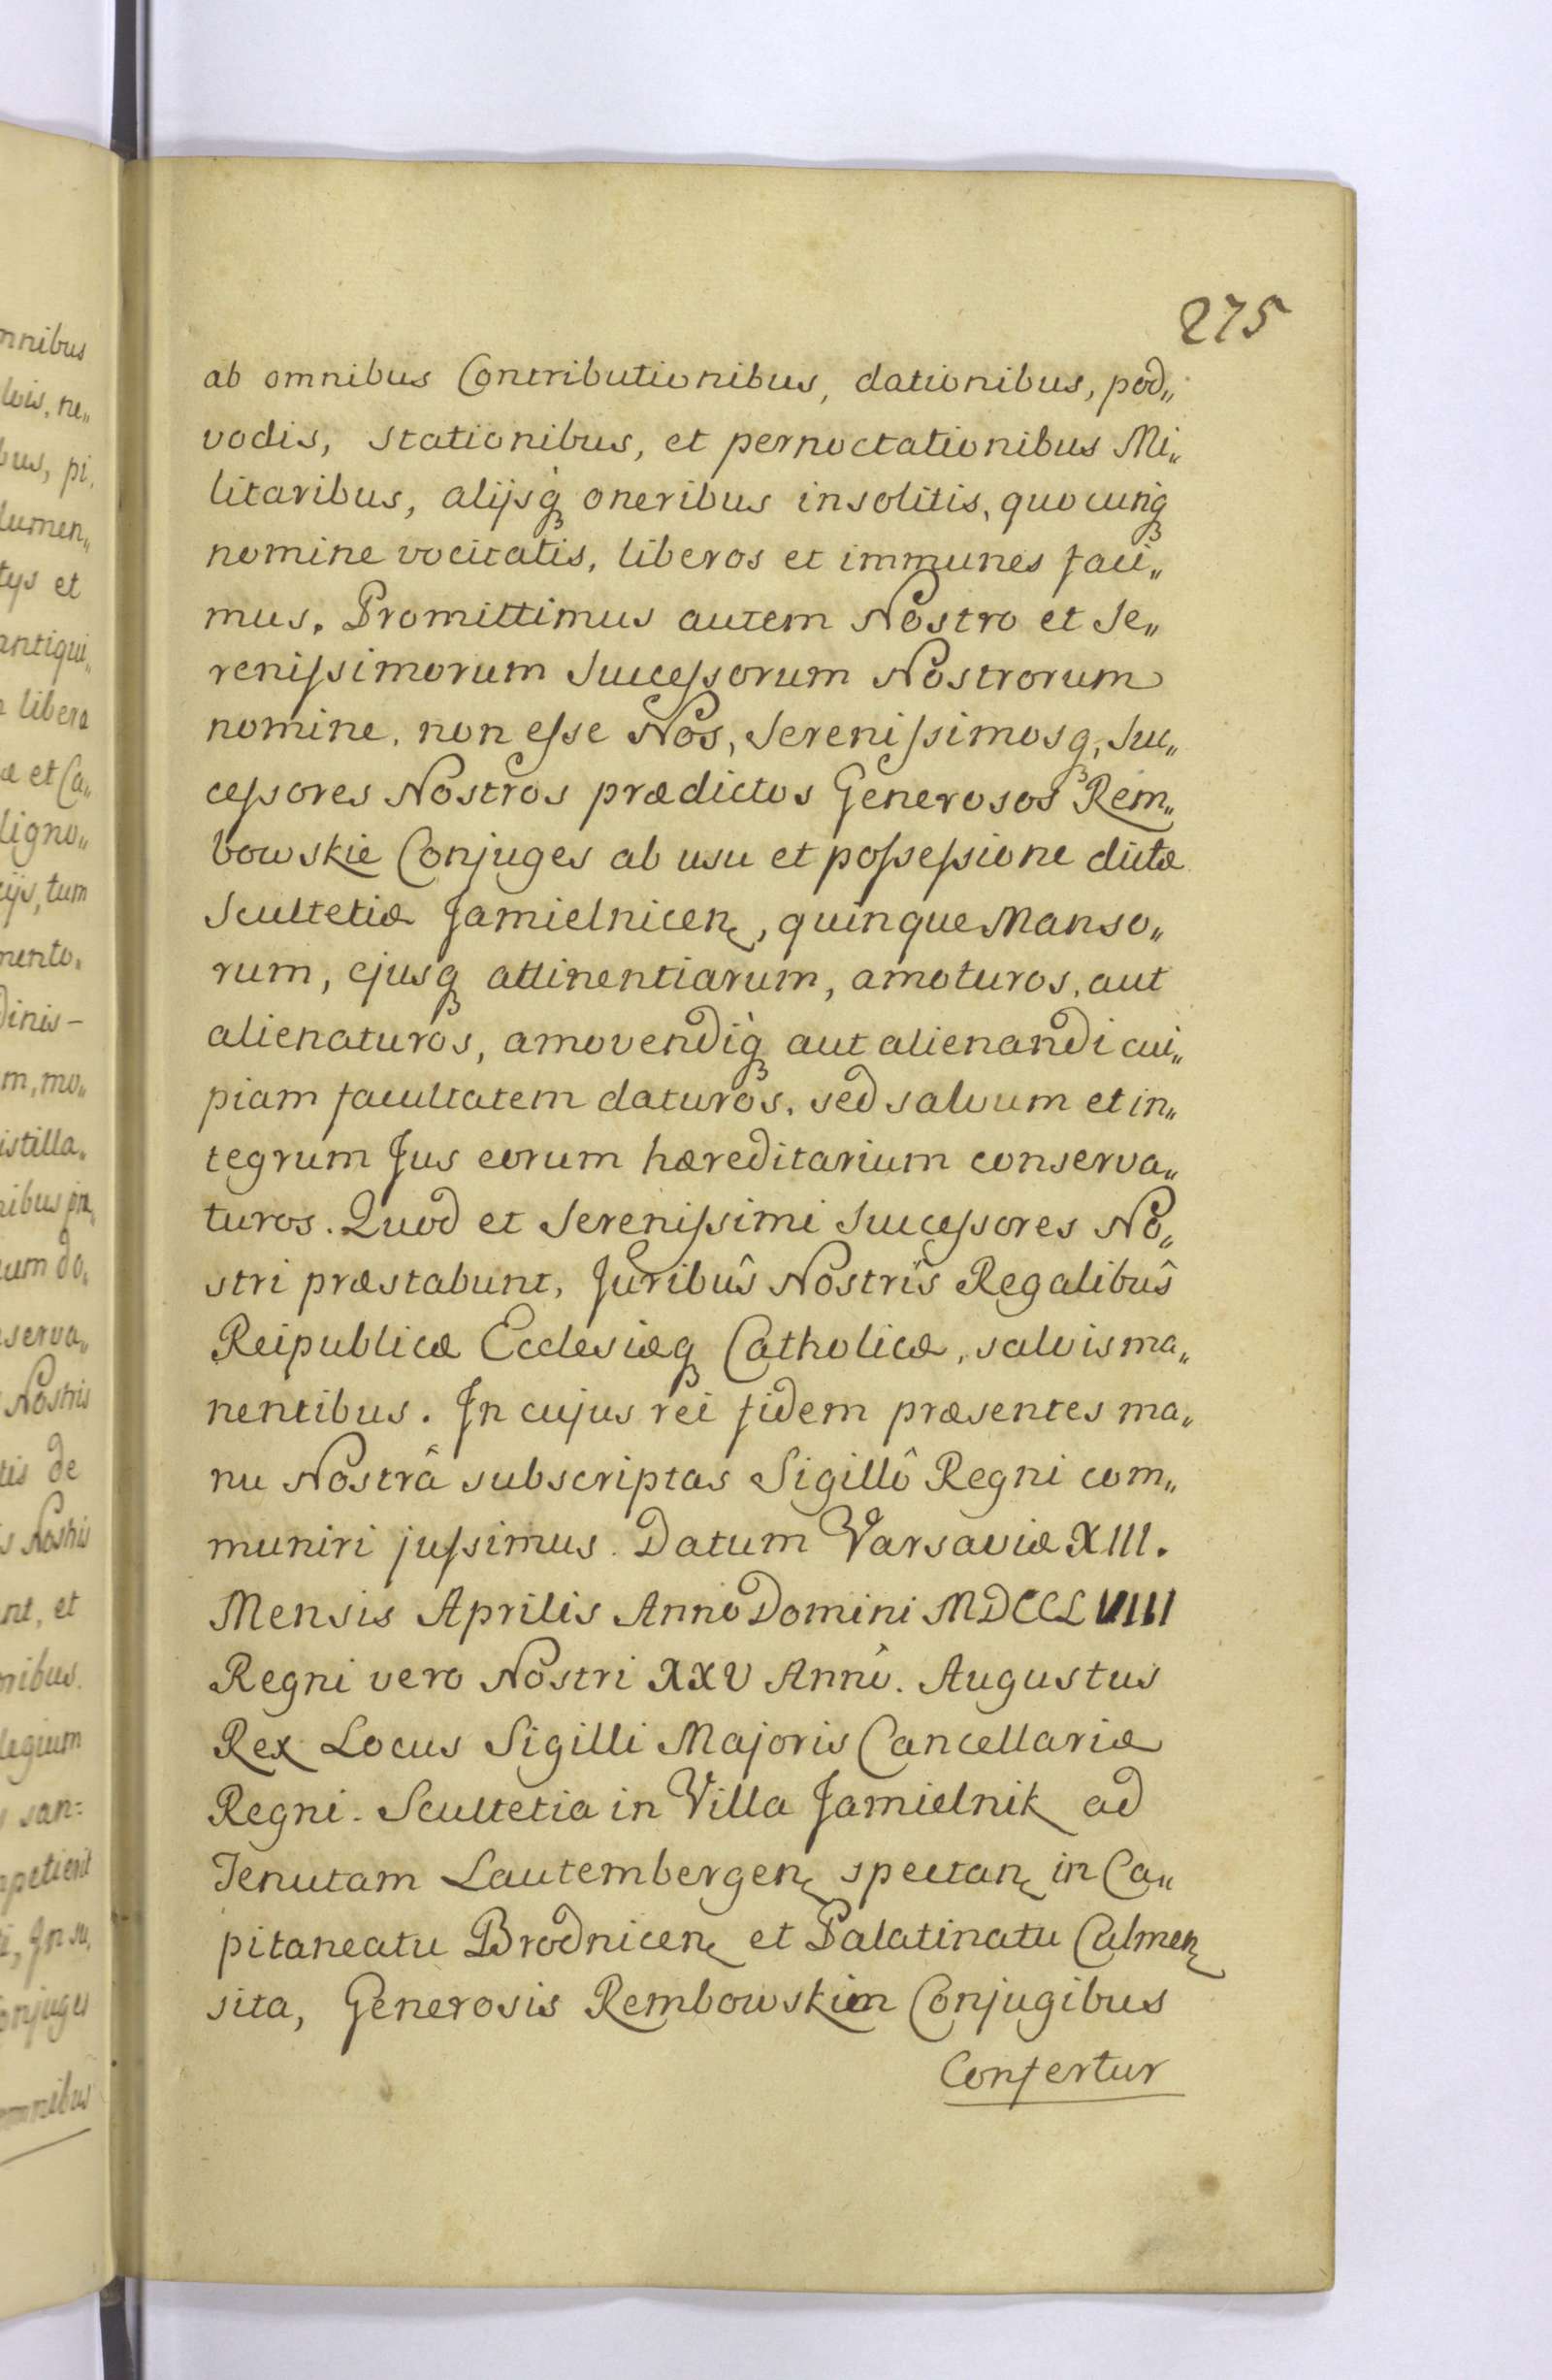 275
ab omnibus Contributionibus, dationibus, pod„
vodis, stationibus, et pernoctationibus Mi„
litaribus, alijsq́ꝫ oneribus insolitis, quocunqꝫ
nomine vocitatis, liberos et immunes faci„
mus. Promittimus autem Nostro et Se„
renissimorum Successorum Nostrorum
nomine, non esse Nos, Serenissimosqꝫ Suc„
cessores Nostros prædictos Generosos Rem„
bowskie Conjuges ab usu et possessione dictæ
Scultetiæ Jamielnicen, quinque Manso„
rum, ejusqꝫ attinentiarum, amoturos, aut
alienaturos, amovendiq́ꝫ aut alienandi cui„
piam facultatem daturos, sed salvum et in„
tegrum Jus eorum hæreditarium conserva„
turos. Quod et Serenissimi Successores No„
stri præstabunt, Juribûs Nostrîs Regalibûs
Reipublicæ Ecclesiæqꝫ Catholicæ, salvis ma„
nentibus. In cujus rei fidem præsentes ma„
nu Nostrâ subscriptas Sigillô Regni com„
muniri jussimus. Datum Varsaviæ XIII.
Mensis Aprilis Anno Domini MDCCLVIII
Regni vero Nostri XXV Annô. Augustus
Rex Locus Sigilli Majoris Cancellariæ
Regni. Scultetia in Villa Jamielnik ad
Tenutam Lautembergen spectan in Ca„
pitaneatu Brodnicen et Palatinatu Culmen
sita, Generosis Rembowskim Conjugibus
Confertur